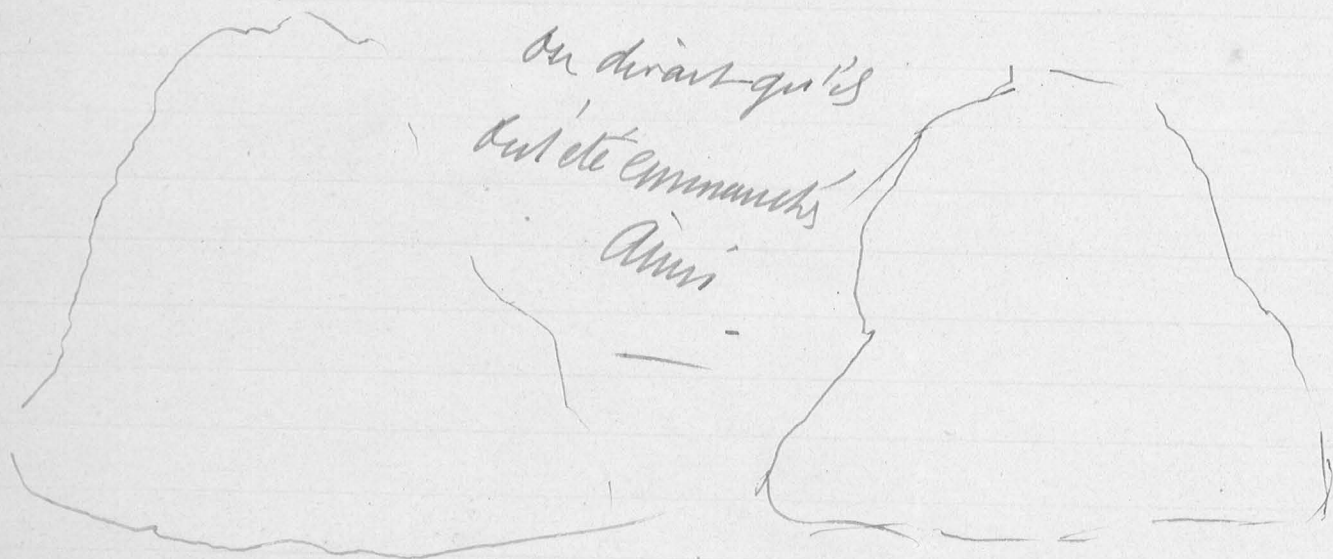 On dirait qu'ils
ont été emmanchés
Ainsi